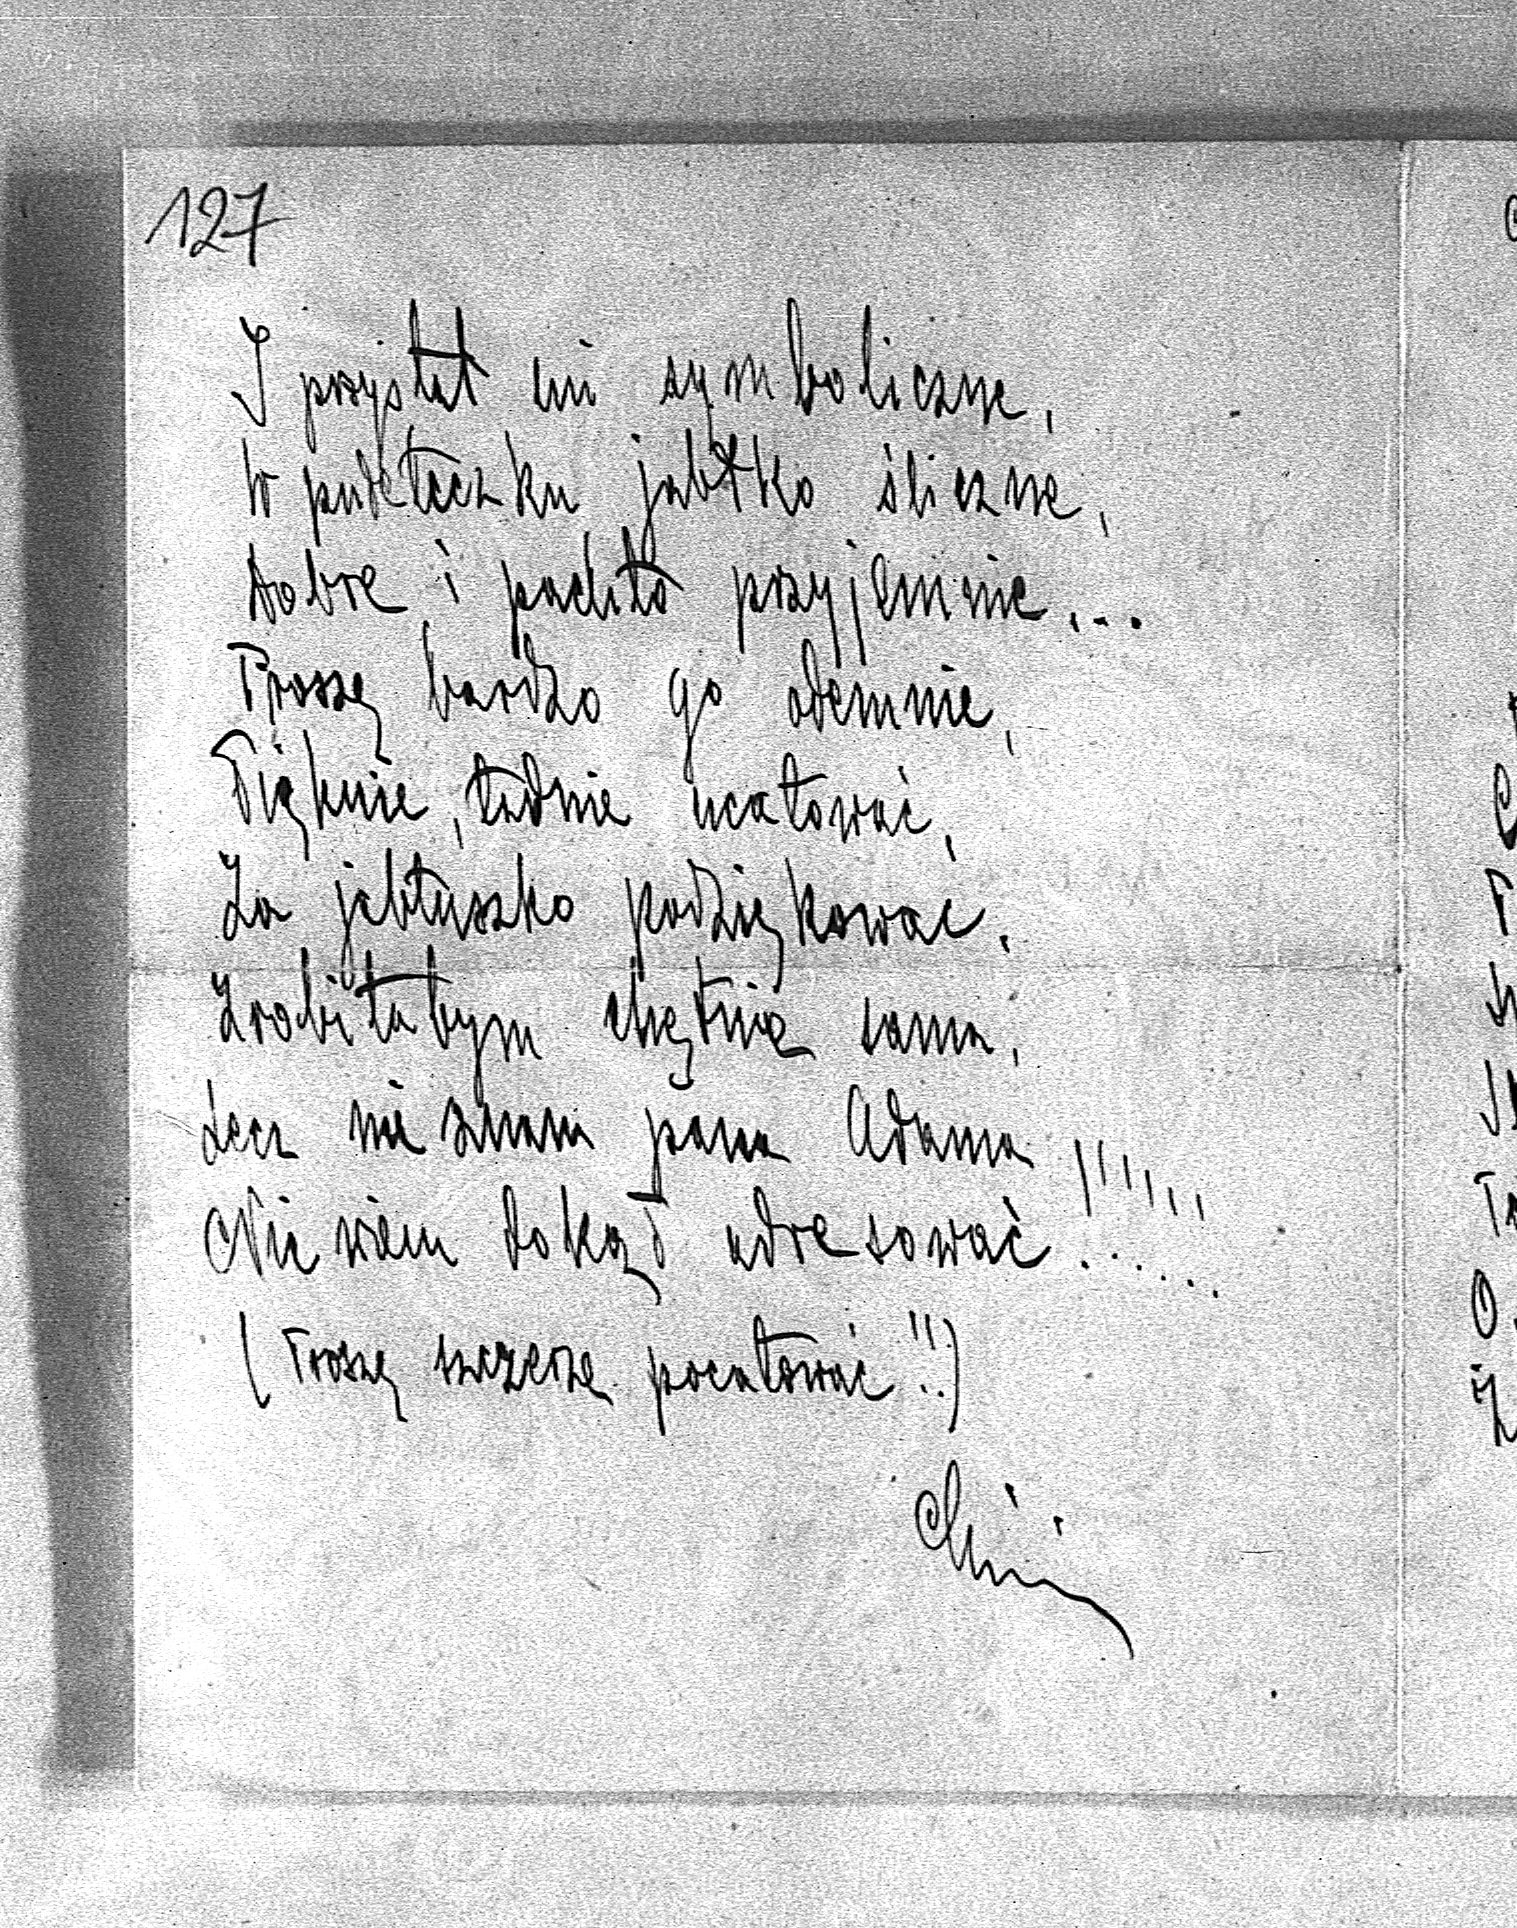 127
I przysłał mi symboliczne,
W pudełeczku jabłko śliczne,
Dobre i pachło przyjemnie...
Proszę bardzo go odemnie,
Pięknie, ładnie ucałować,
Za jabłuszko podziękować.
Zrobiłabym chętnie sama,
Lecz nie znam pana Adama!!!!!!
Nie wiem dokąd adresować......
(Proszę szczerze pocałować!!)